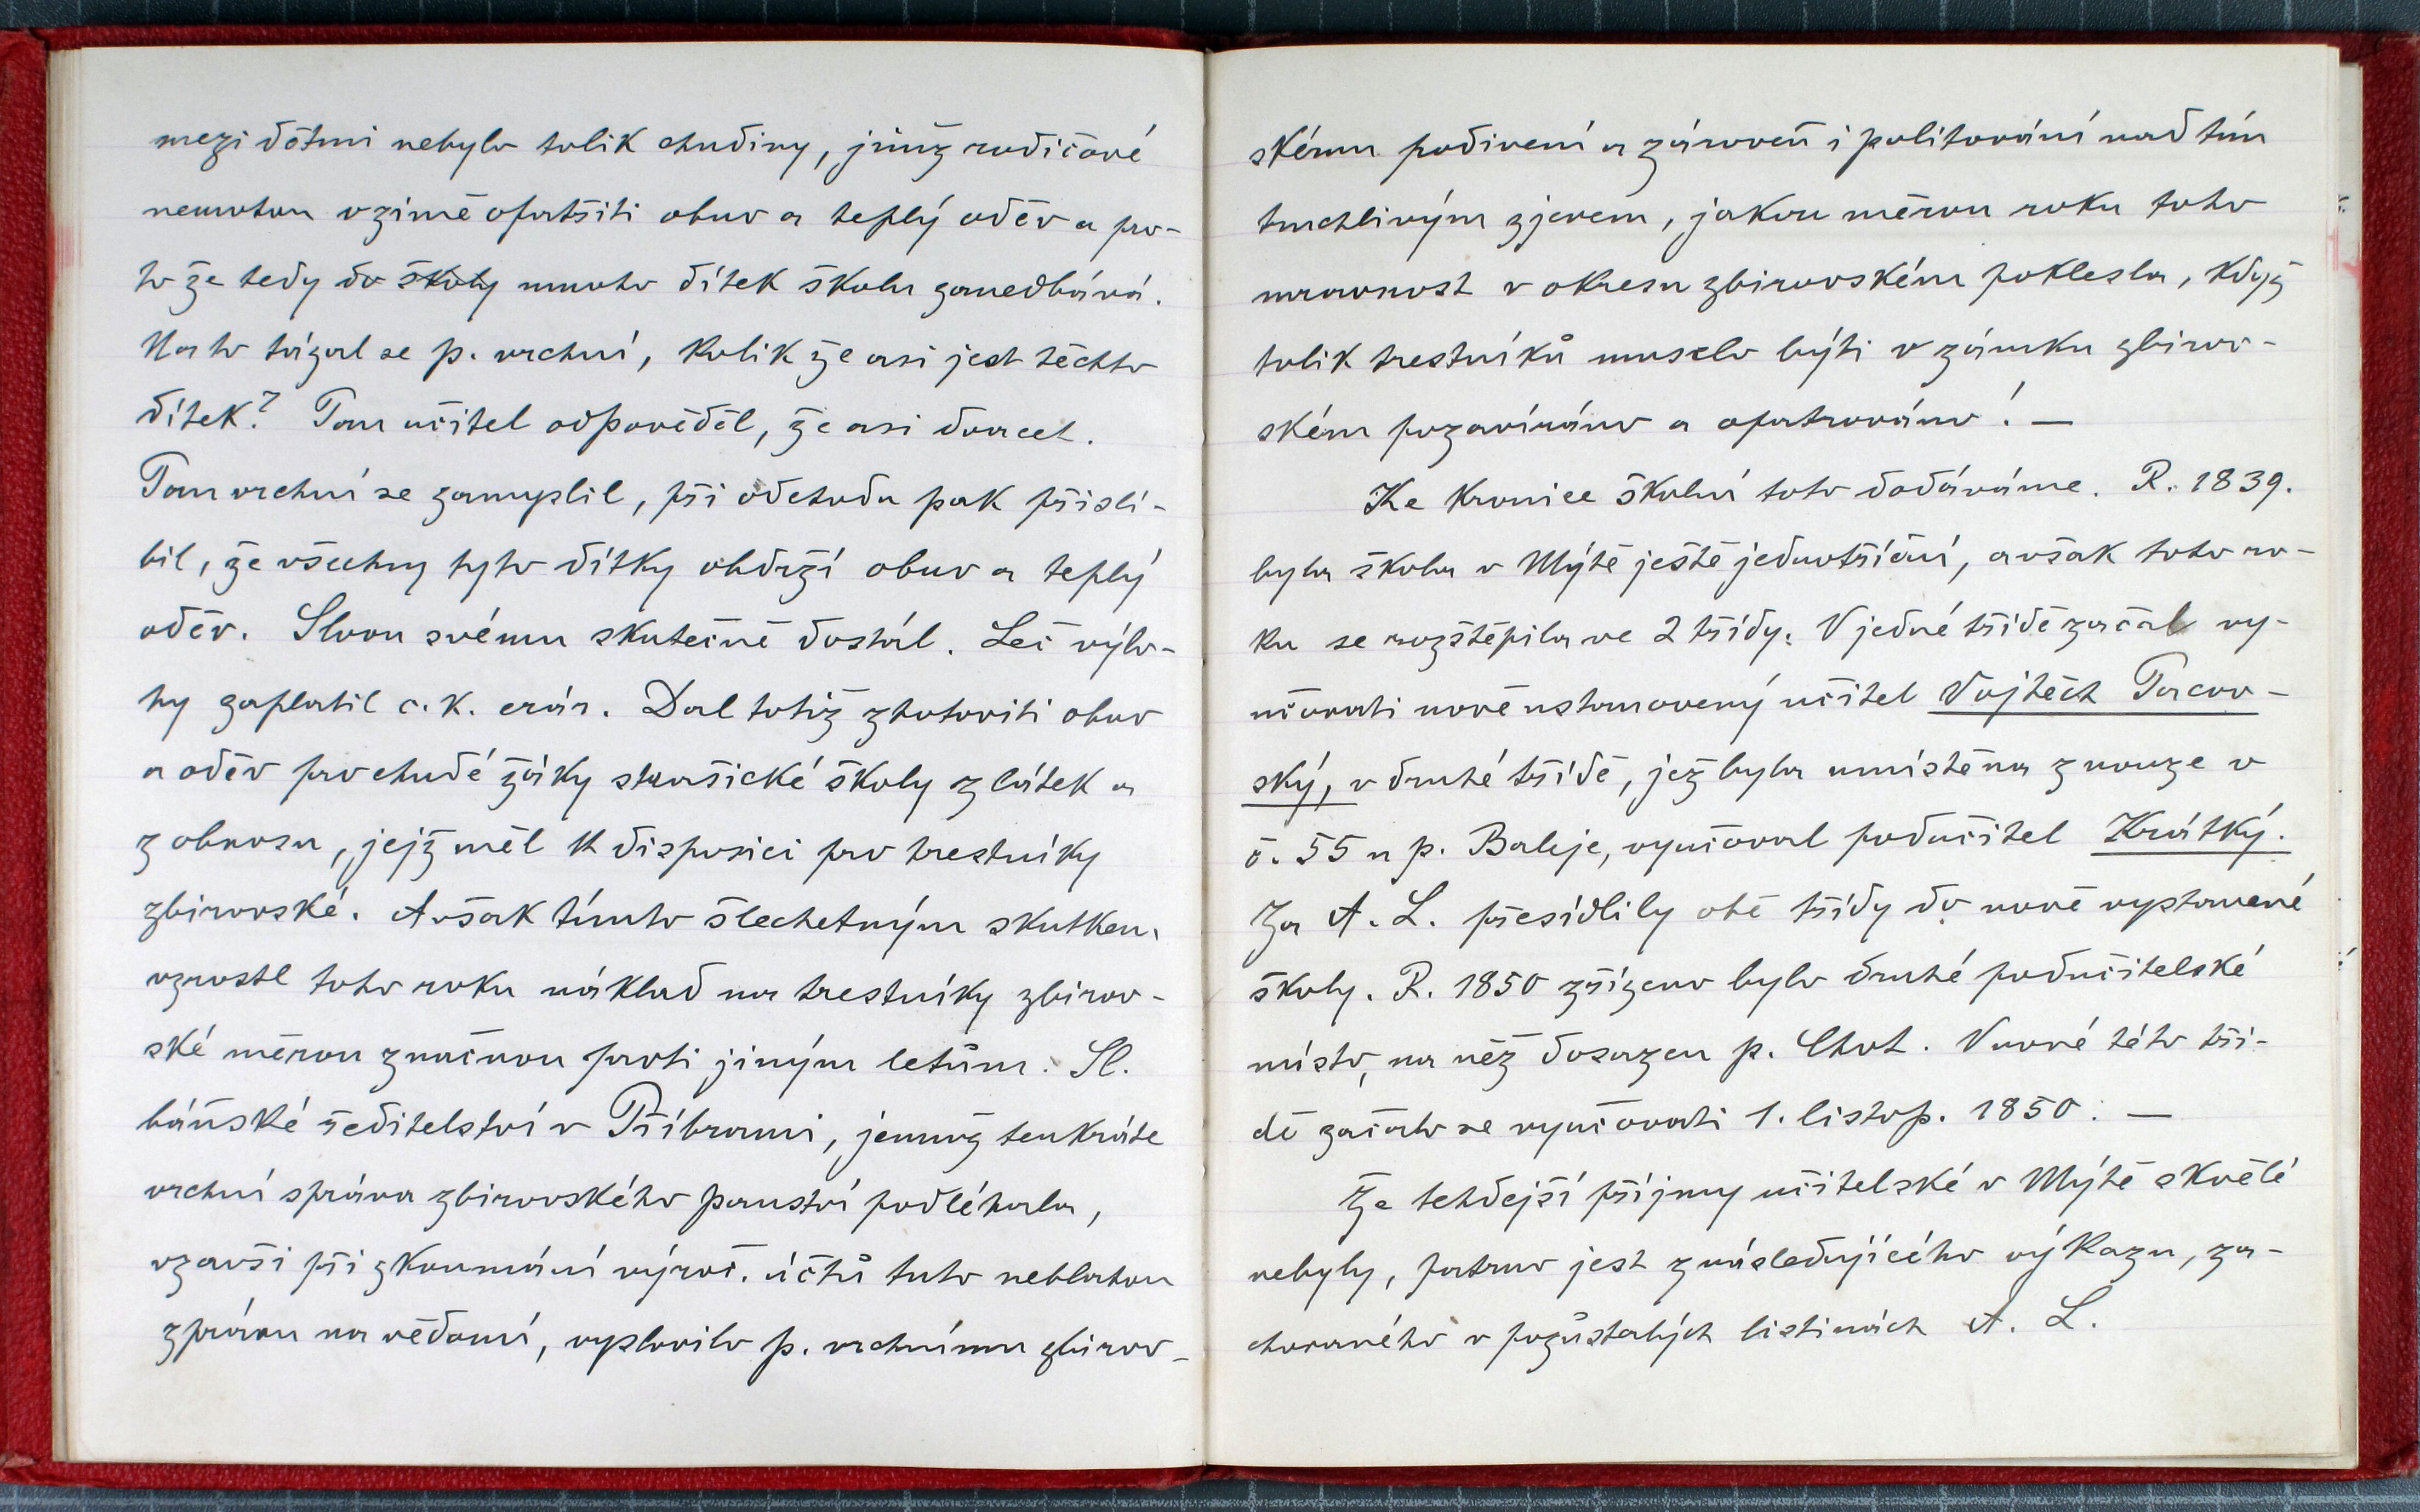 mezi dětmi nebylo tolik chudiny, jimž rodičové
nemohou v zimě opatřiti obuv a teplý oděv a pro-
to že tedy do školy mnoho dítek školu zanedbává.
Na to tázal se p. vrchní, kolik že asi jest těchto
dítek? Pan učitel odpověděl, že asi dvacet.
Pan vrchní se zamyslil, při odchodu pak přislí-
bil, že všechny tyto dítky obdrží obuv a teplý
oděv. Slovu svému skutečně dostál. Leč výlo-
hy zaplatil c. k. erár. Dal totiž zhotoviti obuv
a oděv pro chudé žáky strašické školy z látek a
z obnosu, jejž měl k disposici pro trestníky
zbirovské. Avšak tímto šlechetným skutkem
vzrostl toho roku náklad na trestníky zbirov-
ské měrou značnou proti jiným letům. Sl.
báňské ředitelství v Příbrami, jemuž tenkráte
vrchní správa zbirovského panství podléhala,
vzavši při zkoumání výroč. účtů tuto neblahou
zprávu na vědomí, vyslovilo p. vrchnímu zbirov-
skému podivení a zároveň i politování nad tím
truchlivým zjevem, jakou měrou roku toho
mravnost v okresu zbirovském poklesla, když
tolik trestníků muselo býti v zámku zbirov-
ském pozavíráno a opatrováno! —
Ke kronice školní toto dodáváme. R. 1839.
byla škola v Mýtě ještě jednotřídní, avšak toho ro-
ku se rozštěpila ve 2 třídy. V jedné třídě začal vy-
učovati nově ustanovený učitel Vojtěch Pacov-
ský, v druhé třídě, jež byla umístěna z nouze v
č. 55 u p. Baleje, vyučoval podučitel Krátký.
Za A. L. přesídlily obě třídy do nově vystavené
školy. R. 1850 zřízeno bylo druhé podučitelské
místo, na něž dosazen p. Chot. V nové této tří-
dě začalo se vyučovati 1. listop. 1850. —
Že tehdejší příjmy učitelské v Mýtě skvělé
nebyly, patrno jest z následujícího výkazu, za-
chovaného v pozůstalých listinách A. L.